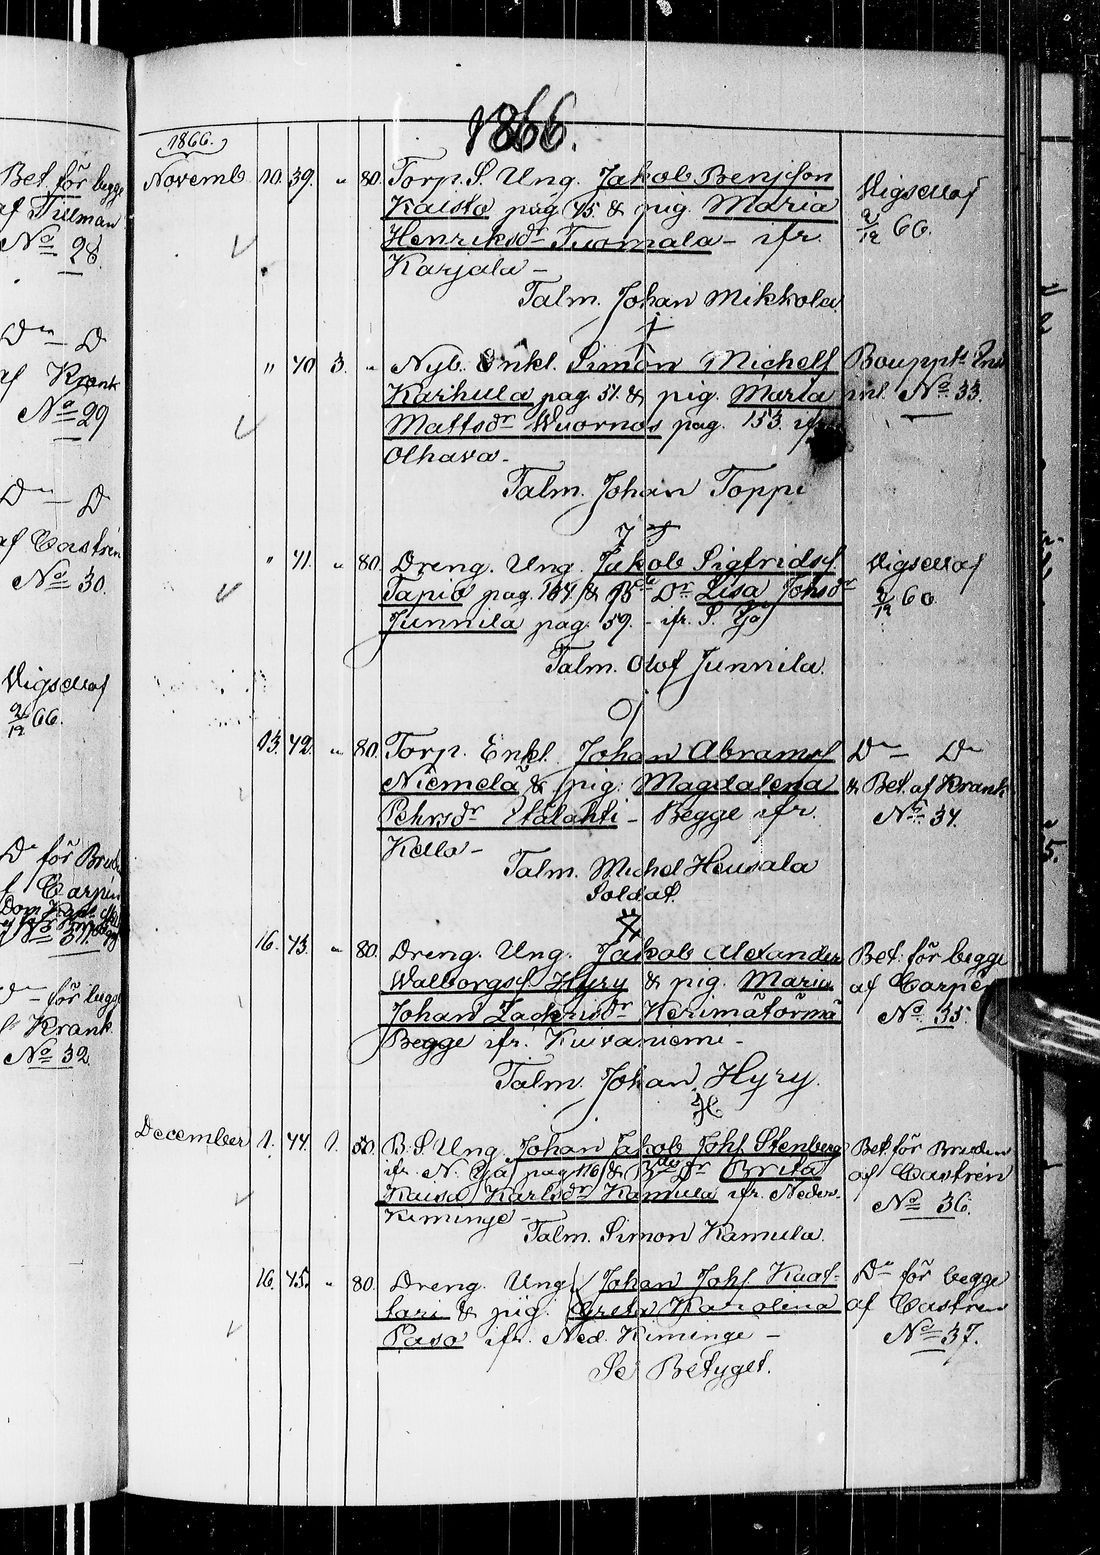 1866.
Bet. för begge
af Tillman
No 28.
Dn — D
af Krank
No 29
Dn — D
af Castrén
No 30.
Vigdes af
9/12 66.
Do för Bruden
f Carpen
No 31.
Do för begge
f Krank
No 32
1866.
Novemb 10. 39. " 80. Torp. S. Ung. Jakob Benjsson
Kaisto pag 45 & pig. Maria
Henriksdr Tuomala - ifr.
Karjala -
Talm. Johan Mikkola
9/12 66.
" 40 3. " Nyb. Enkl. Simon Michelss
Karhula pag. 51. & pig. Maria
Mattsdr Wuornos pag. 153. ifr
Olhava -
Talm. Johan Toppi
Bouppts Ins
No 33.
" 41. " 80. Dreng. Ung. Jakob Sigfridss
Tapio pag. 154. & Bde Dr Lisa Johsdr
Junnila pag. 59. - ifr. S. Ijo
Talm. Olof Junnila.
13. 42. " 80. Torp. Enkl. Johan Abramss
Niemelä & pig. Magdalena
Pehrsdr Etalahti - Begge ifr.
Kello -
Talm. Michel Heusala
Soldat.
Dn Dn
& Bet. af Krank
No 34.
16. 43. " 80. Dreng. Ung. Jakob Alexander
Walborgss Hyry & pig. Maria
Johan Zachrisdr Kerimätörmä
Begge ifr. Kuivaniemi -
Talm. Johan Hyry.
Bet. för begge
af Carpén
No 35.
December 1. 44. 1. 50. B. S. Ung. Johan Jakob Johss Stenberg
ifr. N. Ijo pag 116 & Bdes Dr Brita
Kaisa Karlsdr Kamula ifr. Neder-
Kiminge -
Talm. Simon Kamula.
Bet. för Bruden
af Castrén
No 36.
16. 45. " 80. Dreng. Ung. Johan Johss Kaat-
tari & pig. Greta Karolina
Paso ifr. Ned. Kiminge -
Se Betyget.
Do för begge
af Castrén
No 37.